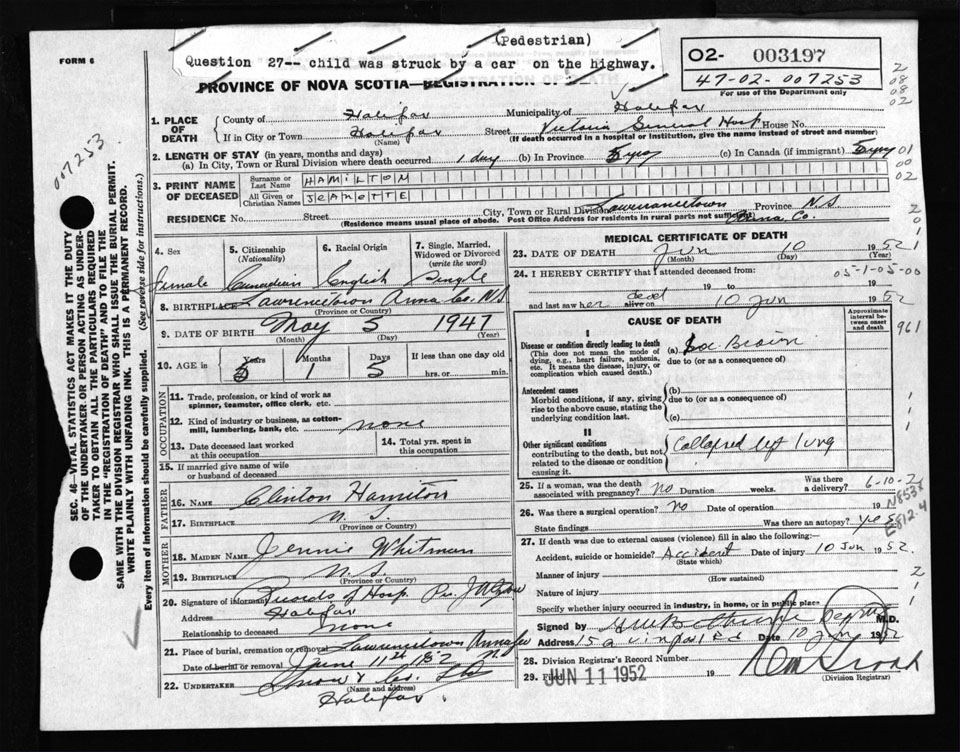 (Pedestrian)
Question 27-- child was struck by a car on the highway.
FORM 6
O2- 003197
47-02-007253
For use of the Department only
PROVINCE OF NOVA SCOTIA—REGISTRATION OF DEATH
007253
2
08
08
02
1. PLACE OF DEATH
County of Halifax Municipality of Halifax
If in City or Town Halifax Street Victoria General Hosp House No.
(Name) (If death occurred in a hospital or institution, give the name instead of street and number)
2. LENGTH OF STAY (in years, months and days)
(a) In City, Town or Rural Division where death occurred 1 day (b) In Province 5 yrs (c) In Canada (if immigrant) 5 yrs
01
00
02
3. PRINT NAME OF DECEASED
Surname or Last Name HAMILTOM
All Given or Christian Names JEANETTE
RESIDENCE No. Street City, Town or Rural Division Lawrencetown Province N.S.
(Residence means usual place of abode. Post Office Address for residents in rural parts not sufficient) Anna. Co.
4. Sex
Female
5. Citizenship
(Nationality)
Canadian
6. Racial Origin
English
7. Single, Married, Widowed or Divorced
(write the word)
Single
8. BIRTHPLACE Lawrencetown Anna Co. N.S
(Province or Country)
9. DATE OF BIRTH May 5 1947
(Month) (Day) (Year)
10. AGE in Years Months Days If less than one day old
5 1 5 hrs. or min.
OCCUPATION
11. Trade, profession, or kind of work as
spinner, teamster, office clerk, etc.
12. Kind of industry or business, as cotton-
mill, lumbering, bank, etc. none
13. Date deceased last worked
at this occupation
14. Total yrs. spent in
this occupation
15. If married give name of wife
or husband of deceased
FATHER
16. NAME Clinton Hamilton
17. BIRTHPLACE N. S.
(Province or Country)
MOTHER
18. MAIDEN NAME Jennie Whitman
19. BIRTHPLACE N.S.
(Province or Country)
20. Signature of informant Records of Hosp. Per
Address Halifax
Relationship to deceased none
21. Place of burial, cremation or removal Lawrencetown Anna Co N.S
Date of burial or removal June 11th 1952
22. UNDERTAKER Snow & Co. Ltd
(Name and address)
Halifax
MEDICAL CERTIFICATE OF DEATH
23. DATE OF DEATH Jun 10 1952
(Month) (Day) (Year)
24. I HEREBY CERTIFY that I attended deceased from:
05-1-05-00
19 to 19
and last saw her dead alive on 10 Jun 1952
CAUSE OF DEATH
Approximate interval between onset and death
961
I
Disease or condition directly leading to death
(This does not mean the mode of
dying, e.g., heart failure, asthenia,
etc. It means the disease, injury, or
complication which caused death.)
(a) Brain
due to (or as a consequence of)
Antecedent causes
Morbid conditions, if any, giving
rise to the above cause, stating the
underlying condition last.
(b)
due to (or as a consequence of)
(c)
II
Other significant conditions
contributing to the death, but not
related to the disease or condition
causing it.
Collapsed left lung
25. If a woman, was the death
associated with pregnancy? No Duration weeks. Was there a delivery?
6-10-2
26. Was there a surgical operation? No Date of operation 19
State findings Was there an autopsy? yes
N853
E812.4
27. If death was due to external causes (violence) fill in also the following:
Accident, suicide or homicide? Accident Date of injury 10 Jun 1952.
(State which)
Manner of injury
(How sustained)
Nature of injury
Specify whether injury occurred in industry, in home, or in public place
Signed by M.D.
Address Date 10 Jun 1952
28. Division Registrar's Record Number
29. Filed JUN 11 1952 19
(Division Registrar)
SEC. 46—VITAL STATISTICS ACT MAKES IT THE DUTY
OF THE UNDERTAKER OR PERSON ACTING AS UNDER-
TAKER TO OBTAIN ALL THE PARTICULARS REQUIRED
IN THE "REGISTRATION OF DEATH" AND TO FILE THE
SAME WITH THE DIVISION REGISTRAR WHO SHALL ISSUE THE BURIAL PERMIT.
WRITE PLAINLY WITH UNFADING INK. THIS IS A PERMANENT RECORD.
Every item of information should be carefully supplied. (See reverse side for instructions.)